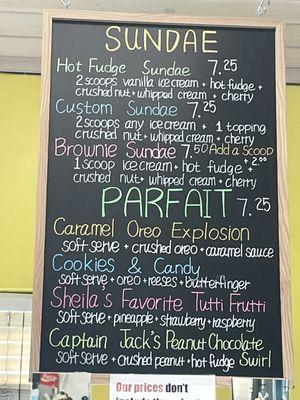 SUNDAE
Hot Fudge Sundae 7.25
2 scoops vanilla ice cream + hot fudge +
crushed nut + whipped cream + cherry
Custom Sundae 7.25
2 scoops any ice cream + 1 topping
crushed nut + whipped cream + cherry
Brownie Sundae 7.50 Add a Scoop
1 scoop ice cream + hot fudge + +2.00
crushed nut + whipped cream + cherry
PARFAIT 7.25
Caramel Oreo Explosion
soft serve + crushed oreo + caramel sauce
Cookies & Candy
soft serve + oreo + reeses + butterfinger
Sheila's Favorite Tutti Frutti
soft serve + pineapple + strawberry + raspberry
Captain Jack's Peanut Chocolate
soft serve + crushed peanut + hot fudge Swirl
Our prices don't